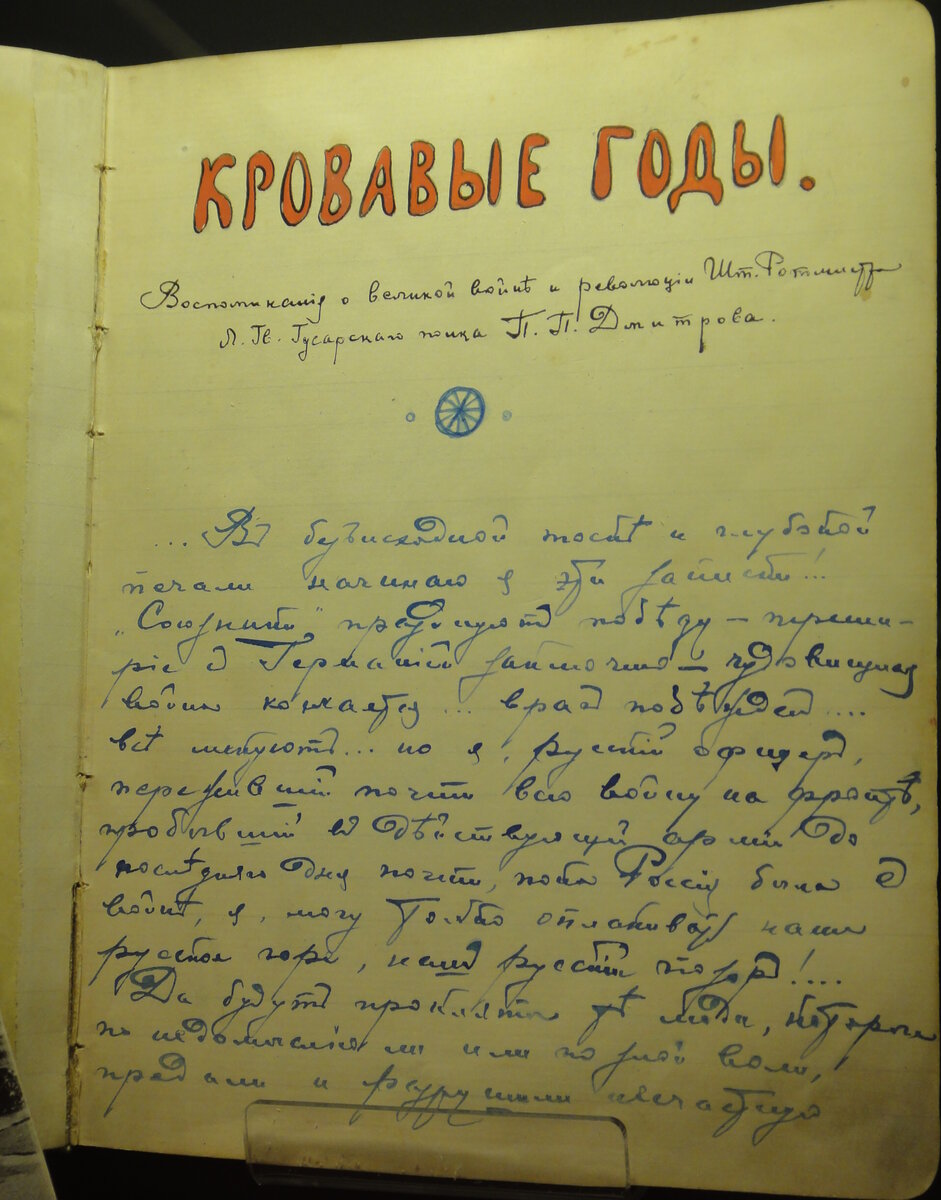 КРОВАВЫЕ ГОДЫ.
Воспоминанія о великой войнѣ и революціи Шт. Ротмистра
Л. Гв. Гусарскаго полка П. П. Дмитрова.
... Въ безъисходной тоскѣ и глубокой
печали начинаю я эти записки!..
„Союзники" празднуютъ побѣду — переми-
ріе съ Германіей заключено — чудовищная
война кончается... врагъ побѣжденъ....
всѣ ликуютъ... но я, русскій офицеръ,
пережившій почти всю войну на фронтѣ,
пробывшій въ дѣйствующей арміи до
послѣдняго дня почти, пока Россія была въ
войнѣ, я, могу только оплакивать наше
русское горе, нашъ русскій позоръ!....
Да будутъ прокляты тѣ люди, которые
по недомыслію ли или по злой волѣ,
предали и разрушили несчастную